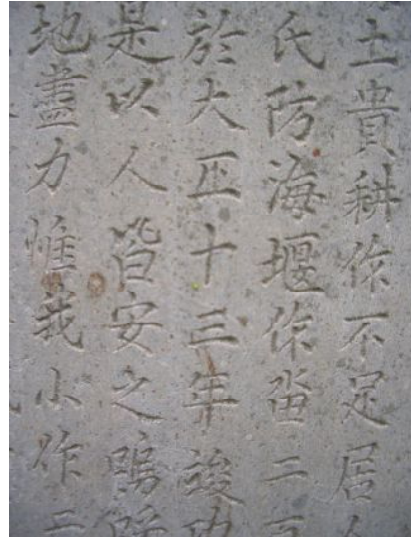 土貴耕作不足居
氏防海堰作畓二百
於大正十三年竣功
是以人皆安之嗚呼
地盡力惟我小作